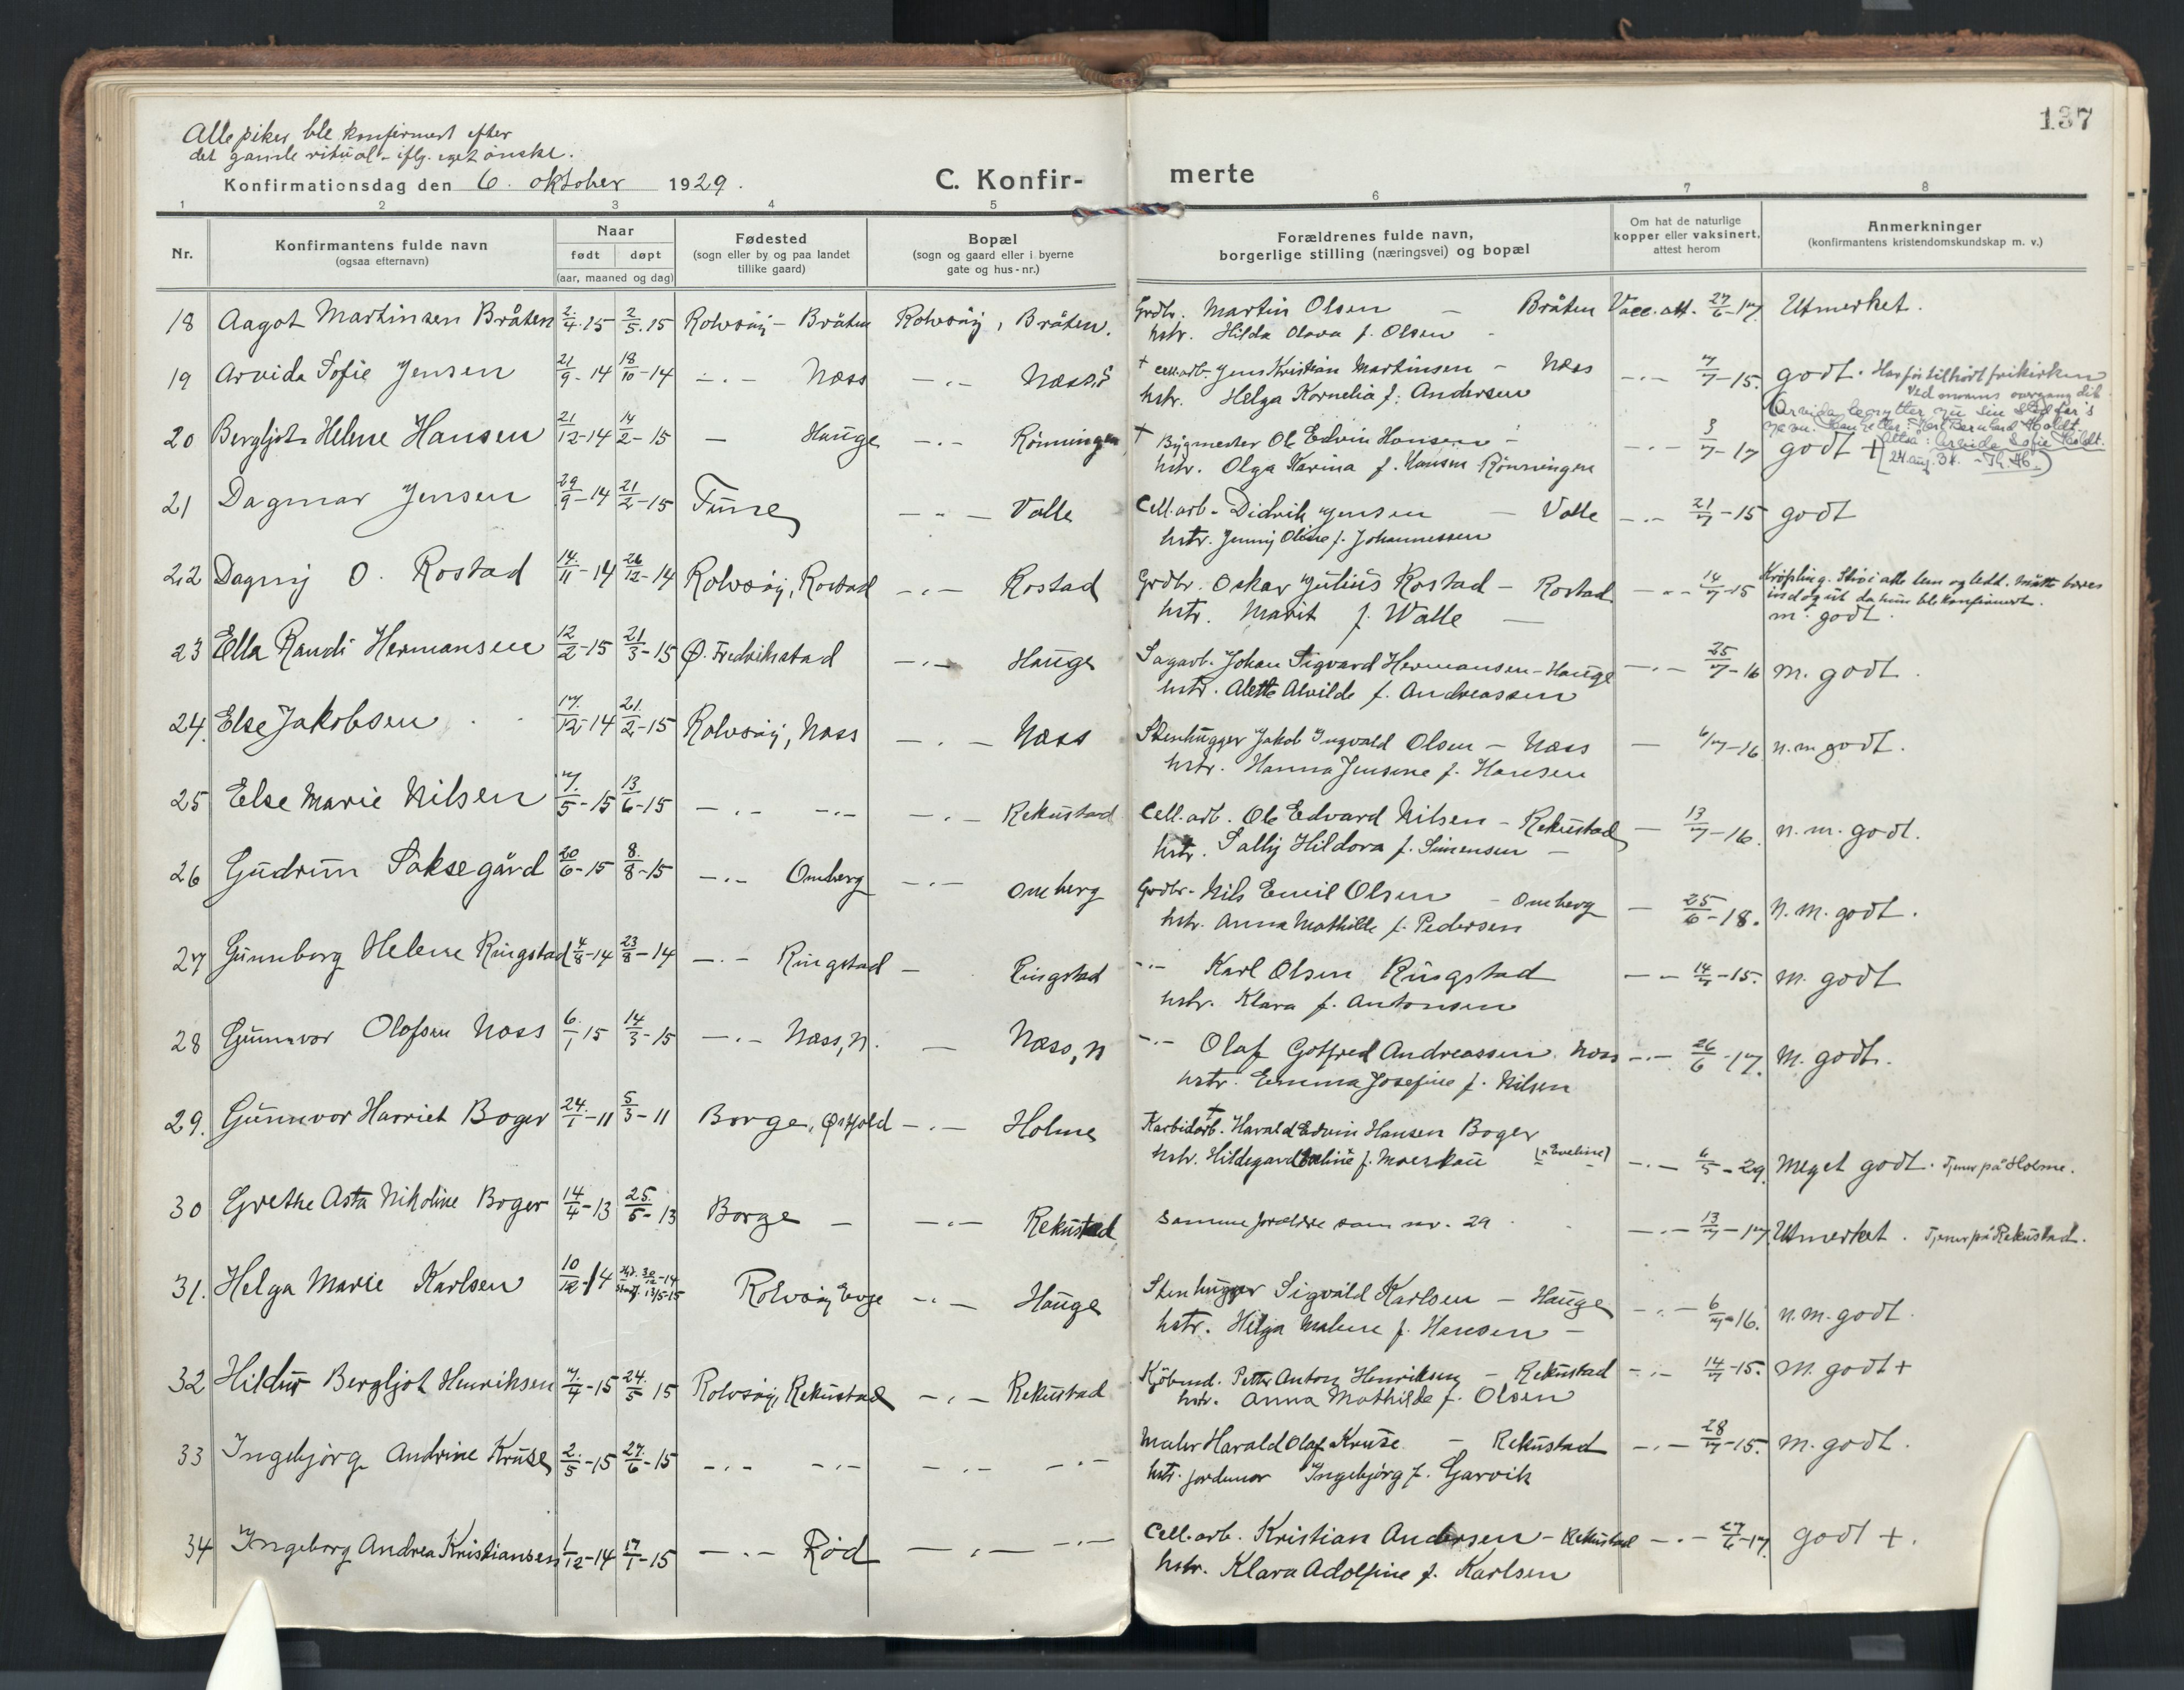 137
Alle piker ble konfirmert efter
det gamle ritual - iflg. eget ønske.
Konfirmationsdag den 6. oktober 1929.
C. Konfir- merte
1 2 3 4 5 6 7 8
Nr. Konfirmantens fulde navn (ogsaa efternavn) Naar født døpt (aar, maaned og dag) Fødested (sogn eller by og paa landet tillike gaard) Bopæl (sogn og gaard eller i byerne gate og hus-nr.) Forældrenes fulde navn, borgerlige stilling (næringsvei) og bopæl Om hat de naturlige kopper eller vaksinert, attest herom Anmerkninger (konfirmantens kristendomskundskap m. v.)
18 Aagot Martinsen Bråten 2/4-15 2/5-15 Rolvsøy - Bråten Rolvsøy, Bråten. Grdbr. Martin Olsen - Bråten Vacc. att. 27/6-17. Utmerket.
hstr. Hilda Olava f. Olsen -
19 Arvida Sofie Jensen 21/9-14 18/10-14 -.- Næss -.- Næss.S † cell.arb. Jens Kristian Martinsen - Næs -.- 7/7-15. godt. Har før tilhørt frikirken
hstr. Helga Kornelia f. Andersen
Arvida benytter nu sin Stedfar's
navn. Han heter: Karl Bernhard Holdt.
Altså: Arvida Sofie Holdt.
(24 aug. 34. - Th. Ab.)
20 Bergljot Helene Hansen 21/12-14 14/2-15 - Hauge -.- Rønningen † Bygmester Ole Edvin Hansen - -.- 3/7-17 godt +
hstr. Olga Karina f. Hansen Rønningen
21 Dagmar Jensen 29/9-14 21/2-15 Tune -.- Valle Cell.arb. Didrik Jensen - Valle -.- 21/7-15 godt
hstr. Jenny Oline f. Johannessen
22 Dagny O. Rostad 14/11-14 26/12-14 Rolvsøy, Rostad -.- Rostad Grdbr. Oskar Julius Rostad - Rostad -.- 14/7-15 Krøpling. Stiv i alle lem og ledd. Måtte bæres
ind og ut da hun ble konfirmert.
hstr. Marit f. Walle - m. godt.
23 Ella Randi Hermansen 12/2-15 21/3-15 Ø. Fredrikstad -.- Hauge Sagarb. Johan Sigvard Hermansen - Hauge -.- 25/7-16 m. godt.
hstr. Alette Alvilde f. Andreassen
24. Else Jakobsen 17/12-14 21/2-15 Rolvsøy, Næss -.- Næss Stenhugger Jakob Ingvald Olsen - Næss - 6/7-16 n. m godt.
hstr. Hanna Jensine f. Hansen
25 Else Marie Nilsen 7/5-15 13/6-15 -.- -.- -.- Rekustad Cell.arb. Ole Edvard Nilsen - Rekustad - 13/7-16. n. m. godt.
hstr. Sally Hildora f. Simensen -
26 Gudrun Saksegård 20/6-15 8/8-15 -.- Omberg -.- Omberg Grdbr. Nils Emil Olsen - Omberg - 25/6-18. n. m. godt.
hstr. Anna Mathilde f. Pedersen
27 Gunnborg Helene Ringstad 4/8-14 23/8-14 -.- Ringstad - Ringstad -.- Karl Olsen Ringstad - - 14/7-15. m. godt
hstr. Klara f. Antonsen
28 Gunnvor Olafsen Næss 6/1 15 14/3-15 -.- Næss, n. - Næss, n -.- Olaf Gotfred Andreassen. Næss -.- 26/6-17. m. godt.
hstr. Emma Josefine f. Nilsen
29. Gunnvor Harriet Boger 24/1-11 5/3-11 Borge, Østfold -.- Holme Karbidarb. † Harald Edvin Hansen Boger
hstr. Hildegard Eveline f. Moeskau (× Eveline) -.- 6/5-29. Meget godt. Tjener på Holme.
30 Grethe Asta Nikoline Boger 14/4-13 25/5-13 Borge - -.- Rekustad Samme foreldre som nr. 29 -.- 13/7-17 Utmerket. Tjener på Rekustad.
31. Helga Marie Karlsen 10/12-14 Hjd. 30/12-14 Rolvsøy Evje -.- Hauge Stenhugger Sigvald Karlsen - Hauge -.- 6/7-16. n. m. godt.
13/5-15 hstr. Helga Malene f. Hansen -
32 Hildur Bergljot Henriksen 7/4-15 24/5 15 Rolvsøy, Rekustad -.- Rekustad Kjøbmd. Petter Anton Henriksen - Rekustad -.- 14/7-15. m. godt +
hstr. Anna Mathilde f. Olsen
33 Ingebjørg Andrine Kruse 2/5-15 27/6-15 -.- -.- -.- -.- Maler Harald Olaf Kruse - Rekustad -.- 28/7-15. m. godt.
hstr. jordmor Ingebjørg f. Garvik
34 Ingeborg Andrea Kristiansen 1/12-14 17/1-15 -.- Rød -.- -.- Cell.arb. Kristian Andersen - Rekustad -.- 27/6-17. godt +.
hstr. Klara Adolfine f. Karlsen